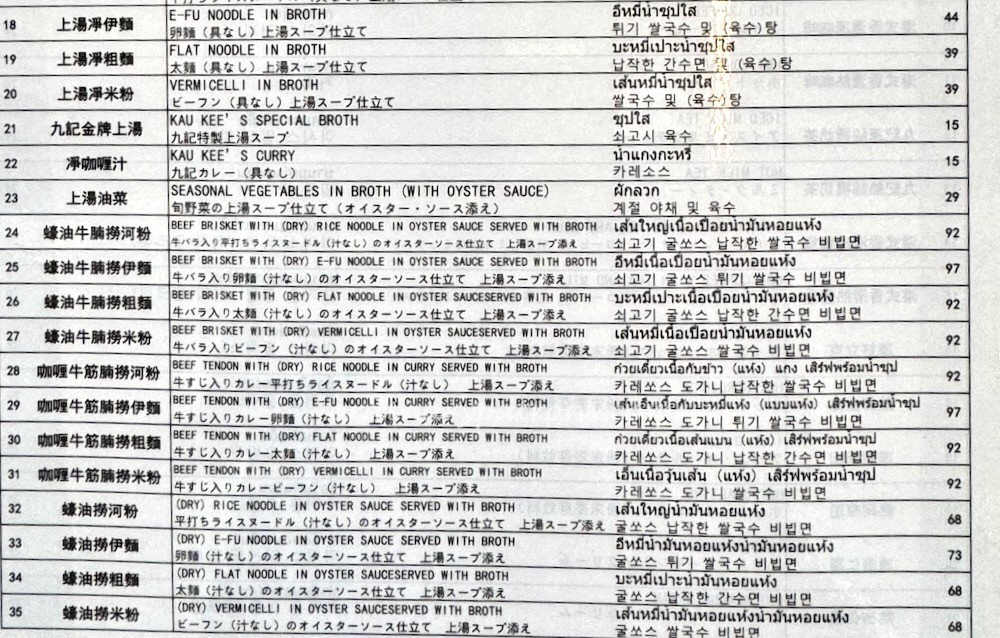 18 上湯淨伊麵 E-FU NOODLE IN BROTH อีหมี่น้ำซุปใส 44
卵麵（具なし）上湯スープ仕立て 튀기 쌀국수 및 (육수)탕
19 上湯淨粗麵 FLAT NOODLE IN BROTH บะหมี่เปาะน้ำซุปใส 39
太麵（具なし）上湯スープ仕立て 납작한 간수면 및 (육수)탕
20 上湯淨米粉 VERMICELLI IN BROTH เส้นหมี่น้ำซุปใส 39
ビーフン（具なし）上湯スープ仕立て 쌀국수 및 (육수)탕
21 九記金牌上湯 KAU KEE'S SPECIAL BROTH ซุปใส 15
九記特製上湯スープ 쇠고시 육수
22 淨咖喱汁 KAU KEE'S CURRY น้ำแกงกะหรี่ 15
九記カレー（具なし） 카레소스
23 上湯油菜 SEASONAL VEGETABLES IN BROTH (WITH OYSTER SAUCE) ผักลวก 29
旬野菜の上湯スープ仕立て（オイスター・ソース添え） 계절 야채 및 육수
24 蠔油牛腩撈河粉 BEEF BRISKET WITH (DRY) RICE NOODLE IN OYSTER SAUCE SERVED WITH BROTH เส้นใหญ่เนื้อเปื่อยน้ำมันหอยแห้ง 92
牛バラ入り平打ちライスヌードル（汁なし）のオイスターソース仕立て 上湯スープ添え 쇠고기 굴쏘스 납작한 쌀국수 비빕면
25 蠔油牛腩撈伊麵 BEEF BRISKET WITH (DRY) E-FU NOODLE IN OYSTER SAUCE SERVED WITH BROTH อีหมี่เนื้อเปื่อยน้ำมันหอยแห้ง 97
牛バラ入り卵麵（汁なし）のオイスターソース仕立て 上湯スープ添え 쇠고기 굴쏘스 튀기 쌀국수 비빕면
26 蠔油牛腩撈粗麵 BEEF BRISKET WITH (DRY) FLAT NOODLE IN OYSTER SAUCESERVED WITH BROTH บะหมี่เปาะเนื้อเปื่อยน้ำมันหอยแห้ง 92
牛バラ入り太麵（汁なし）のオイスターソース仕立て 上湯スープ添え 쇠고기 굴쏘스 납작한 간수면 비빕면
27 蠔油牛腩撈米粉 BEEF BRISKET WITH (DRY) VERMICELLI IN OYSTER SAUCESERVED WITH BROTH เส้นหมี่เนื้อเปื่อยน้ำมันหอยแห้ง 92
牛バラ入りビーフン（汁なし）のオイスターソース仕立て 上湯スープ添え 쇠고기 굴쏘스 쌀국수 비빕면
28 咖喱牛筋腩撈河粉 BEEF TENDON WITH (DRY) RICE NOODLE IN CURRY SERVED WITH BROTH ก๋วยเตี๋ยวเนื้อกับข่าว (แห้ง) แกง เสิร์ฟพร้อมน้ำซุป 92
牛すじ入りカレー平打ちライスヌードル（汁なし） 上湯スープ添え 카레쏘스 도가니 납작한 쌀국수 비빕면
29 咖喱牛筋腩撈伊麵 BEEF TENDON WITH (DRY) E-FU NOODLE IN CURRY SERVED WITH BROTH เส้นเอ็นเนื้อกับบะหมี่แห้ง (แบบแห้ง) เสิร์ฟพร้อมน้ำซุป 97
牛すじ入りカレー卵麵（汁なし） 上湯スープ添え 카레쏘스 도가니 튀기 쌀국수 비빕면
30 咖喱牛筋腩撈粗麵 BEEF TENDON WITH (DRY) FLAT NOODLE IN CURRY SERVED WITH BROTH ก๋วยเตี๋ยวเนื้อเส้นแบน (แห้ง) เสิร์ฟพร้อมน้ำซุป 92
牛すじ入りカレー太麵（汁なし） 上湯スープ添え 카레쏘스 도가니 납작한 간수면 비빕면
31 咖喱牛筋腩撈米粉 BEEF TENDON WITH (DRY) VERMICELLI IN CURRY SERVED WITH BROTH เอ็นเนื้อวุ้นเส้น (แห้ง) เสิร์ฟพร้อมน้ำซุป 92
牛すじ入りカレービーフン（汁なし） 上湯スープ添え 카레쏘스 도가니 쌀국수 비빕면
32 蠔油撈河粉 (DRY) RICE NOODLE IN OYSTER SAUCE SERVED WITH BROTH เส้นใหญ่น้ำมันหอยแห้ง 68
平打ちライスヌードル（汁なし）のオイスターソース仕立て 上湯スープ添え 굴쏘스 납작한 쌀국수 비빕면
33 蠔油撈伊麵 (DRY) E-FU NOODLE IN OYSTER SAUCE SERVED WITH BROTH อีหมี่น้ำมันหอยแห้งน้ำมันหอยแห้ง 73
卵麵（汁なし）のオイスターソース仕立て 上湯スープ添え 굴쏘스 튀기 쌀국수 비빕면
34 蠔油撈粗麵 (DRY) FLAT NOODLE IN OYSTER SAUCESERVED WITH BROTH บะหมี่เปาะน้ำมันหอยแห้ง 68
太麵（汁なし）のオイスターソース仕立て 上湯スープ添え 굴쏘스 납작한 간수면 비빕면
35 蠔油撈米粉 (DRY) VERMICELLI IN OYSTER SAUCESERVED WITH BROTH เส้นหมี่น้ำมันหอยแห้งน้ำมันหอยแห้ง 68
ビーフン（汁なし）のオイスターソース仕立て 上湯スープ添え 굴쏘스 쌀국수 비빕면